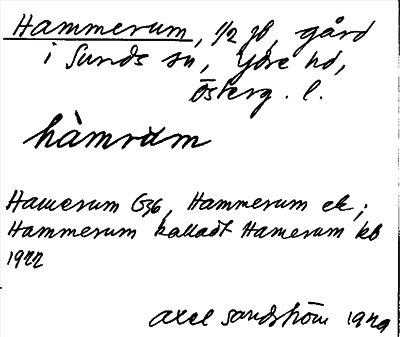 Hammerum, 1/2 gd, gård
i Sunds sn, Ydre hd,
Österg. l.
hàmrùm
Hamerum G36, Hammerum ek;
Hammerum kalladt Hamerum kb
1922
Axel Sandström 1929